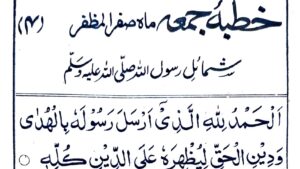 خطبۂ جمعہ ماہ صفر المظفر (۴)
شمائل رسول اللہ صلّی اللہ علیہ وسلّم
اَلْحَمْدُ لِلّٰهِ الَّذِیْۤ اَرْسَلَ رَسُوْلَهٗ بِالْهُدٰی
وَدِیْنِ الْحَقِّ لِیُظْهِرَهٗ عَلَی الدِّیْنِ كُلِّهٖ